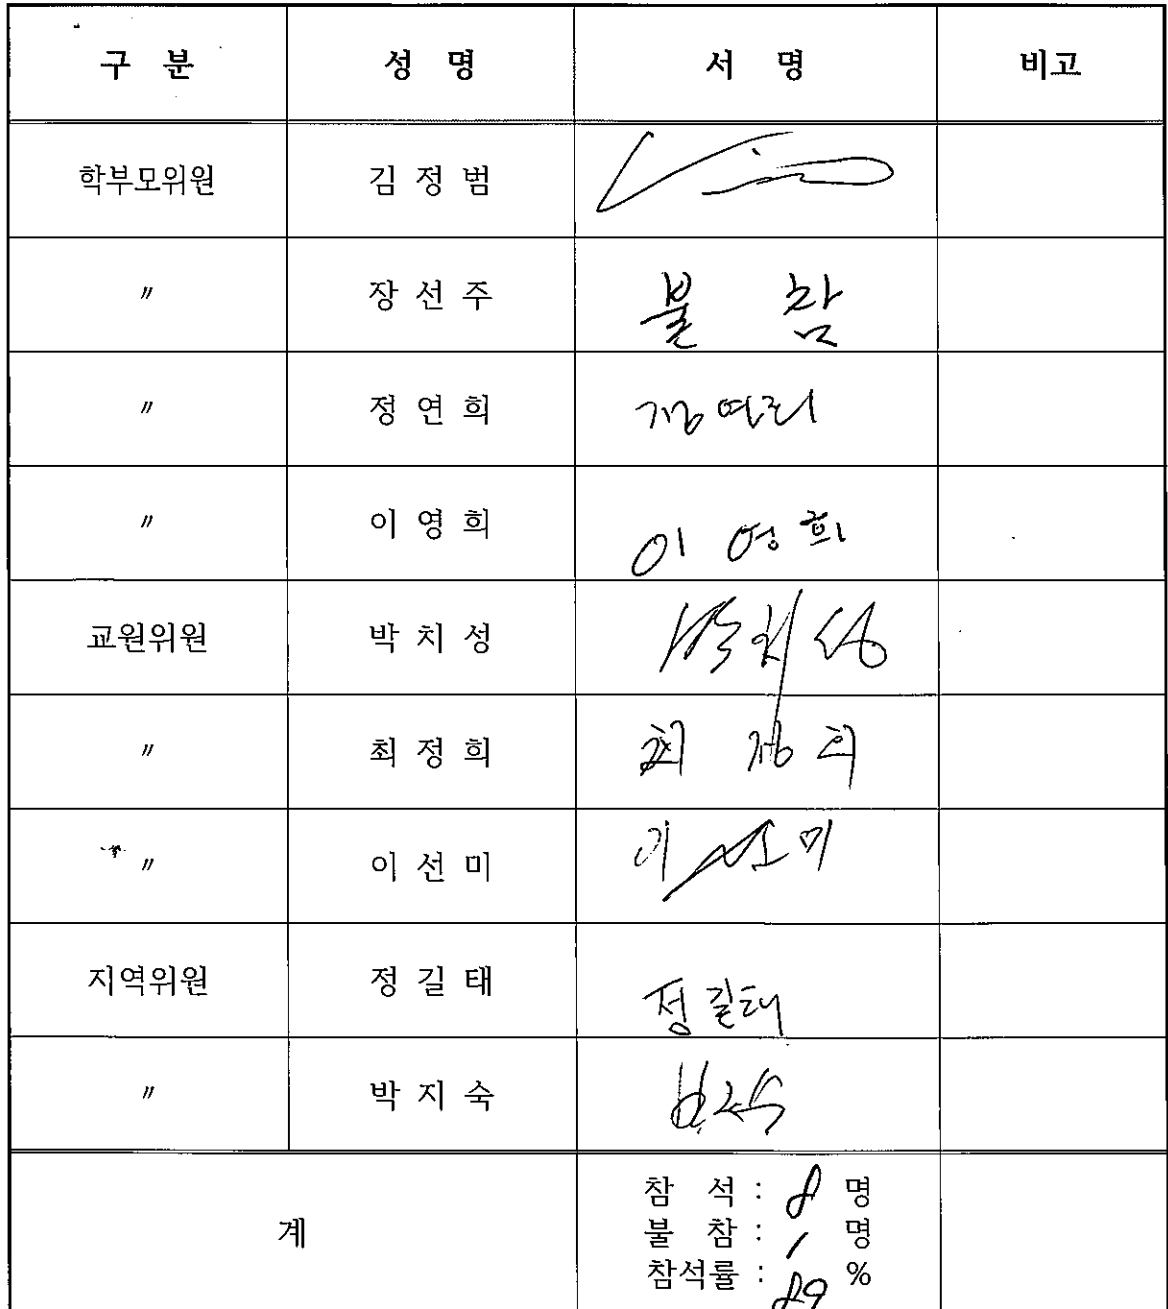 구 분 성 명 서 명 비고
학부모위원 김 정 범
〃 장 선 주 불 참
〃 정 연 희 정연희
〃 이 영 희 이 영 희
교원위원 박 치 성 박치성
〃 최 정 희 최 정 희
〃 이 선 미 이 선 미
지역위원 정 길 태 정길태
〃 박 지 숙
계
참 석 : 8 명
불 참 : 1 명
참석률 : 89 %